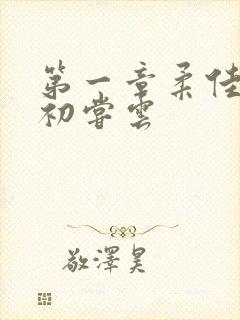 第一章柔佳
初嘗雲
敬澤昊